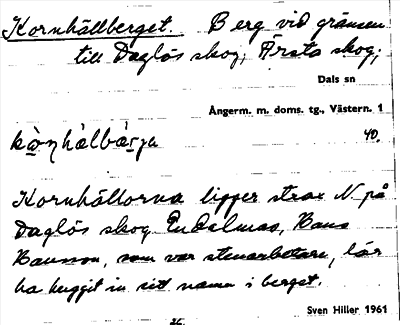 Kornhällberget. Berg vid gränsen
till Daglös skog, Ärsta skog;
Dals sn
Ångerm. m. doms. tg., Västern. 1
40.
Kornhällorna ligger strax N. på
Daglös skog. Endalmas, Hans
Hansson, som var stenarbetare, lär
ha huggit in sitt namn i berget.
Sven Hiller 1961